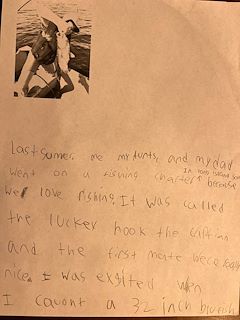 Last sumer, me my funts, and my dad
went on a fishing charter in long island sound because
we love fishing. It was called
the lucker hook the caltian
and the first mate were really
nice. I was exsited when
I caught a 32 inch blurish